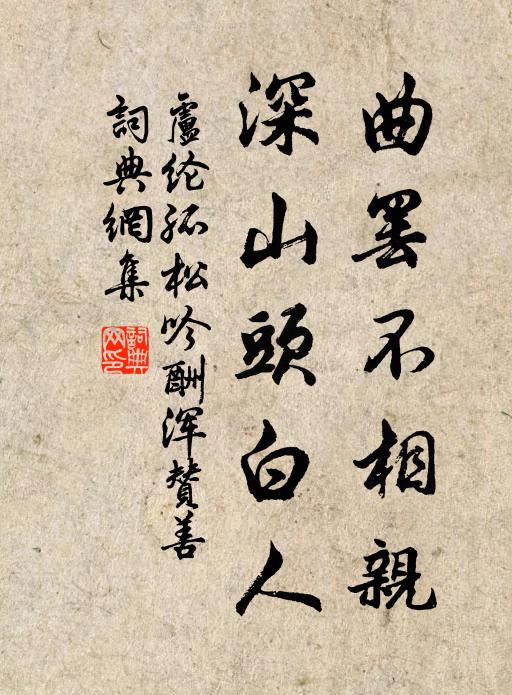 曲罢不相親
深山頭白人
盧纶孤松吟酬浑贊善
詞典網集
詞典网印